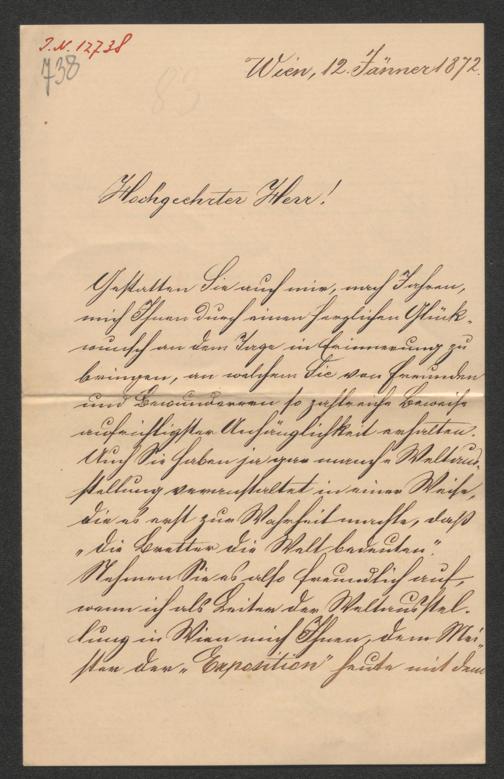 I.N. 12738
738
83
Wien, 12. Jänner 1872.
Hochgeehrter Herr!
Gestatten Sie auch mir, nach Jahren,
mich Ihnen durch einen herzlichen Glück-
wunsch an dem Tage in Erinnerung zu
bringen, an welchem Sie von Freunden
und Bewunderern so zahlreiche Beweise
aufrichtigster Anhänglichkeit erhalten.
Auch Sie haben ja gar manche Weltaus-
stellung veranstaltet in einer Weise,
die es erst zur Wahrheit machte, daß
„die Bretter die Welt bedeuten“.
Nehmen Sie es also freundlich auf,
wenn ich als Leiter der Weltausstel-
lung in Wien mich Ihnen, dem Mei-
ster der „Exposition“ heute mit dem